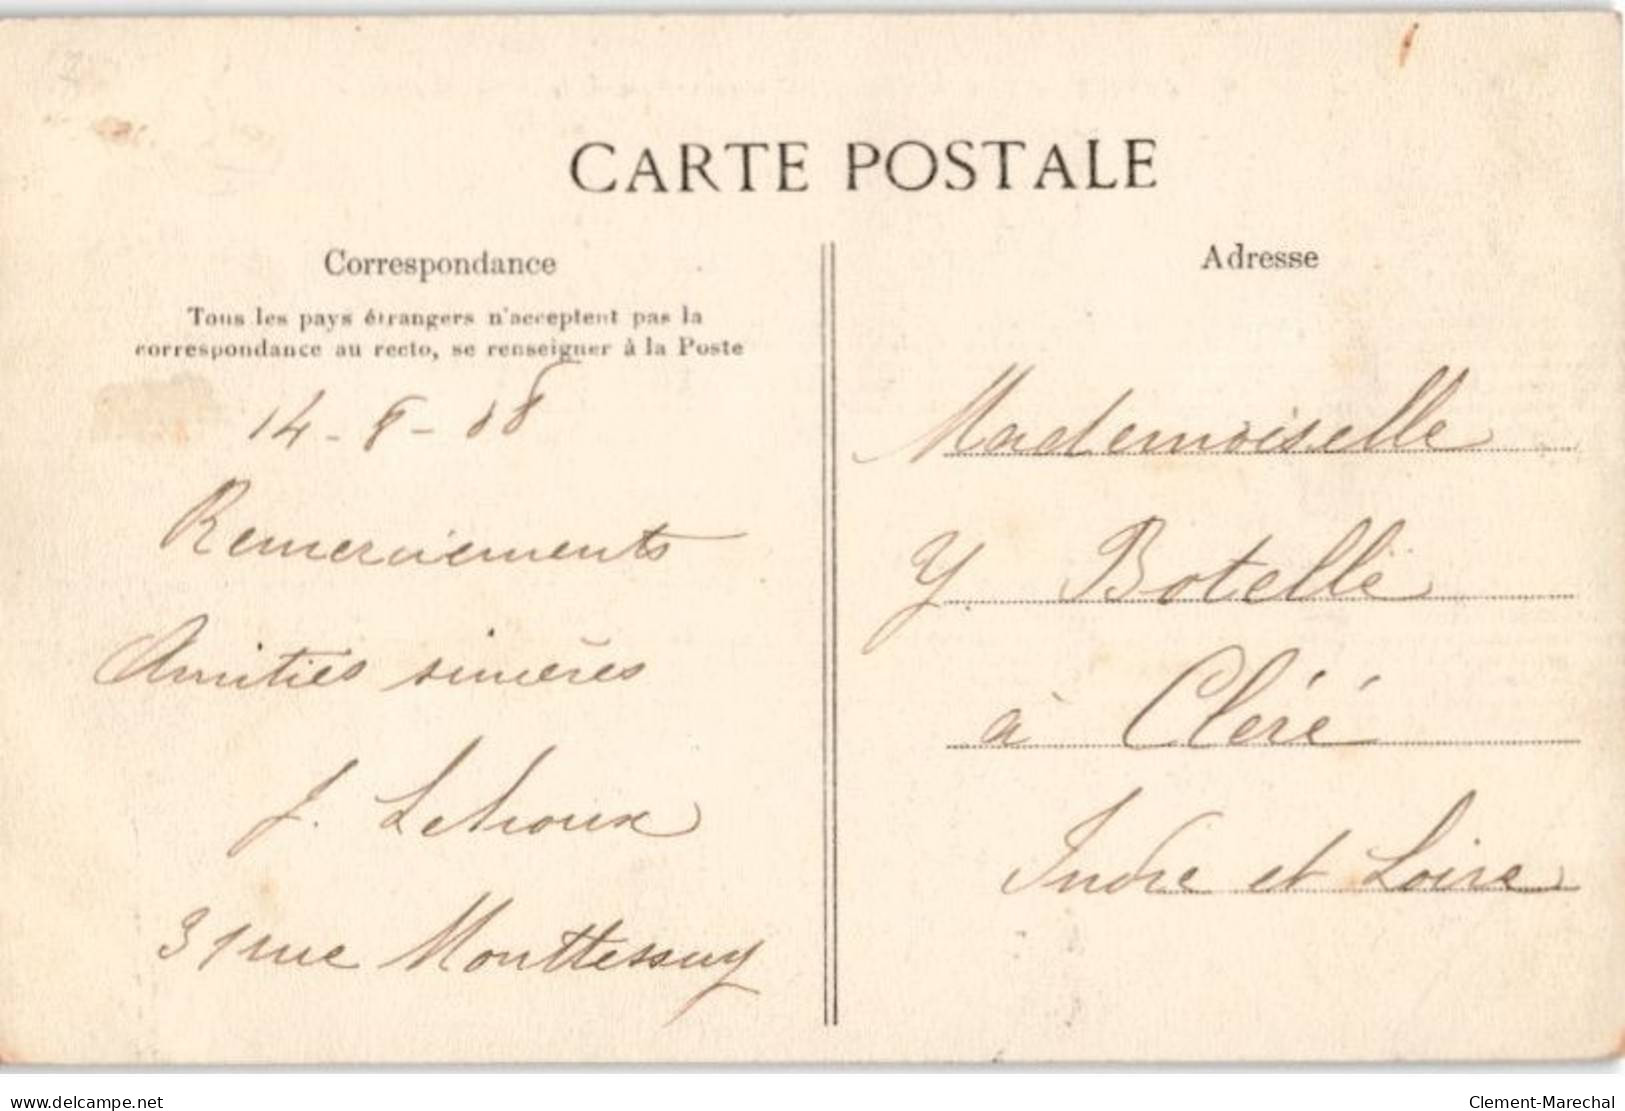 CARTE POSTALE
Correspondance
Tous les pays étrangers n'acceptent pas la
correspondance au recto, se renseigner à la Poste
14-8-08
Remerciements
Amitiés sincères
J. Lehoux
31 rue Monttessuy
Adresse
Mademoiselle
Y. Botelle
à Cléré
Indre et Loire
delcampe.net
Clement-Marechal